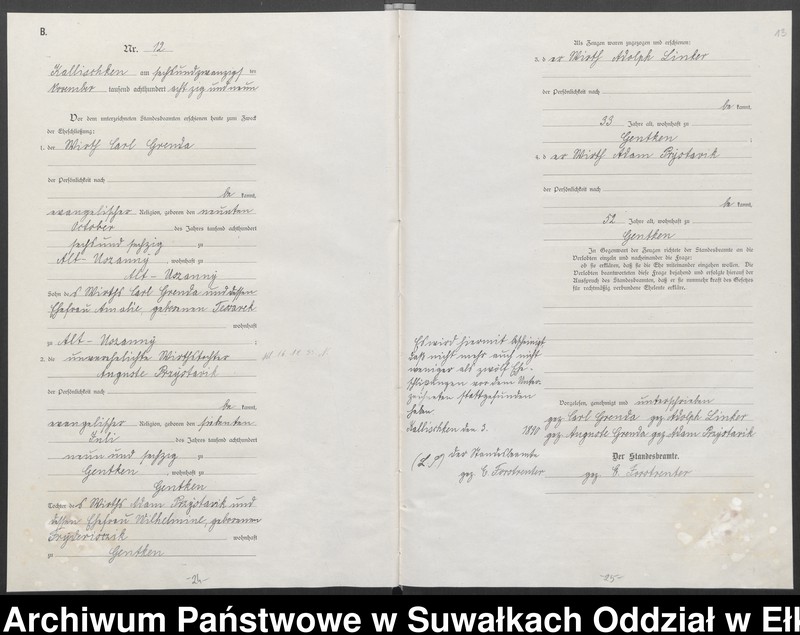 B.
Nr. 12
Kallischken am sechsundzwanzigsten
November tausend achthundert achtzig und neun
Vor dem unterzeichneten Standesbeamten erschienen heute zum Zweck
der Eheschließung:
1. der Wirth Carl Grenda
der Persönlichkeit nach
be kannt,
evangelischer Religion, geboren den neunten
October des Jahres tausend achthundert
sechs und sechzig zu
Alt-Uszanny, wohnhaft zu
Alt-Uszanny
Sohn des Wirths Carl Grenda und dessen
Ehefrau Amalie, geborenen
wohnhaft
zu Alt-Uszanny ;
2. die unverehelichte Wirthstochter
Auguste Przytarik
der Persönlichkeit nach
be kannt,
evangelischer Religion, geboren den siebenten
Juli des Jahres tausend achthundert
neun und sechzig zu
Gentken, wohnhaft zu
Gentken
Tochter des Wirths Adam Przytarik und
dessen Ehefrau Wilhelmine, geborenen
wohnhaft
zu Gentken
-24-
13
Als Zeugen waren zugezogen und erschienen:
3. der Wirth Adolph Linker
der Persönlichkeit nach
be kannt,
33 Jahre alt, wohnhaft zu
Gentken ;
4. der Wirth Adam Przytarik
der Persönlichkeit nach
be kannt,
52 Jahre alt, wohnhaft zu
Gentken
In Gegenwart der Zeugen richtete der Standesbeamte an die
Verlobten einzeln und nacheinander die Frage:
ob sie erklären, daß sie die Ehe miteinander eingehen wollen. Die
Verlobten beantworteten diese Frage bejahend und erfolgte hierauf der
Ausspruch des Standesbeamten, daß er sie nunmehr kraft des Gesetzes
für rechtmäßig verbundene Eheleute erkläre.
Es wird hiermit bescheinigt
daß nicht mehr und nicht
weniger als zwölf Ehe-
schließungen vor dem Unter-
zeichneten stattgefunden
haben
Kallischken den 3. 1890
(L.S.) Der Standesbeamte
gez
Vorgelesen, genehmigt und unterschrieben
gez Carl Grenda gez Adolph Linker
gez Auguste Grenda gez Adam Przytarik
Der Standesbeamte.
gez
-25-
Archiwum Państwowe w Suwałkach Oddział w Ełk